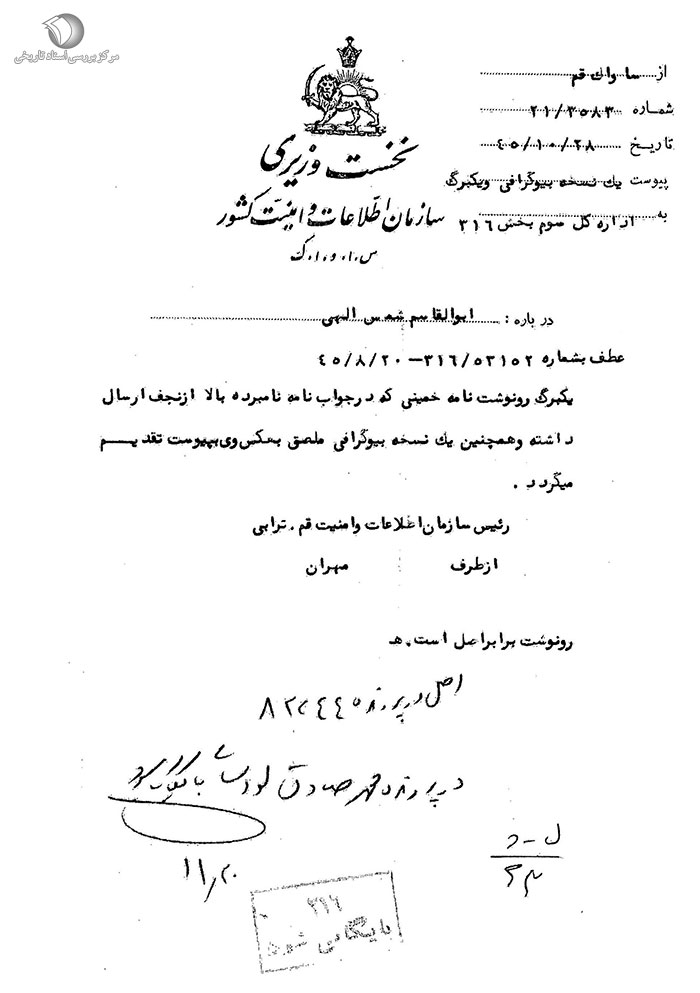 مرکز بررسی اسناد تاریخی
از ساواک قم
شماره ۲۱/۳۵۸۳
تاریخ ۴۵/۱۰/۲۸
پیوست یک نسخه بیوگرافی ویکبرگ
به اداره کل سوم بخش ۳۱۶
نخست وزیری
سازمان اطلاعات و امنیت کشور
س.ا.و.ا.ک
درباره : ابوالقاسم شمس الهی
عطف بشماره ۳۱۶/۵۳۱۵۲–۴۵/۸/۲۰
یکبرگ رونوشت نامه خمینی که درجواب نامه نامبرده بالا ازنجف ارسال
داشته وهمچنین یک نسخه بیوگرافی ملصق بعکس وی بپیوست تقدیم
میگردد .
رئیس سازمان اطلاعات وامنیت قم . ترابی
ازطرف مهران
رونوشت برابراصل است.هـ
اصل در پرونده
در پرونده محمد صادق
۱۱/۲۰
ل-د
۲۳
۳۱۶
بایگانی شود